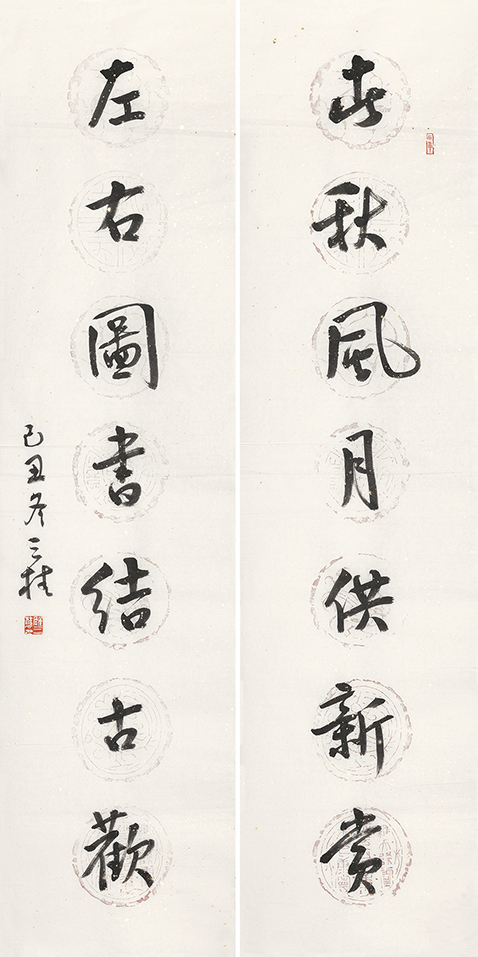 春秋風月供新賞
左右圖書結古歡
己丑冬三桂